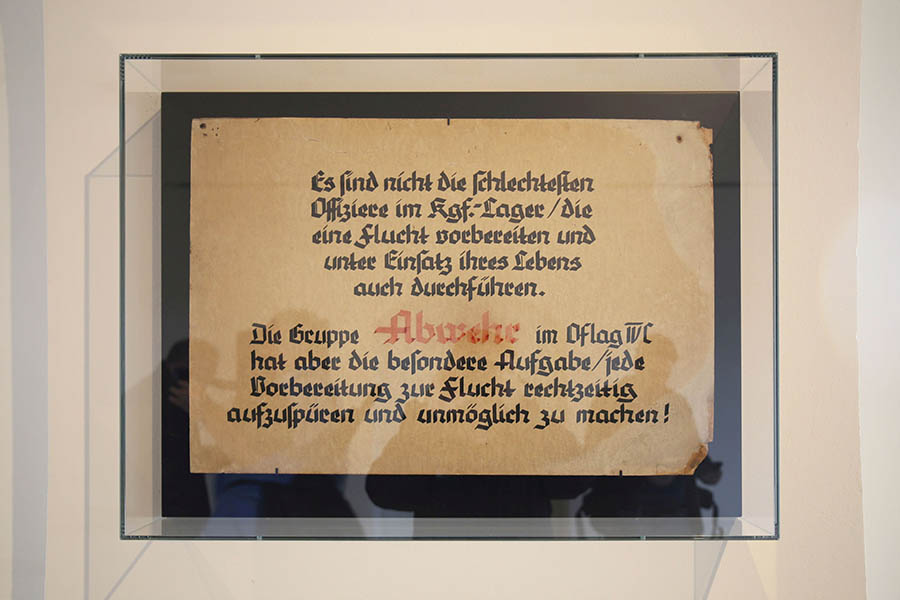 Es sind nicht die schlechtesten
Offiziere im Kgf.-Lager/die
eine Flucht vorbereiten und
unter Einsatz ihres Lebens
auch durchführen.
Die Gruppe Abwehr im Oflag IVC
hat aber die besondere Aufgabe/jede
Vorbereitung zur Flucht rechtzeitig
aufzuspüren und unmöglich zu machen!